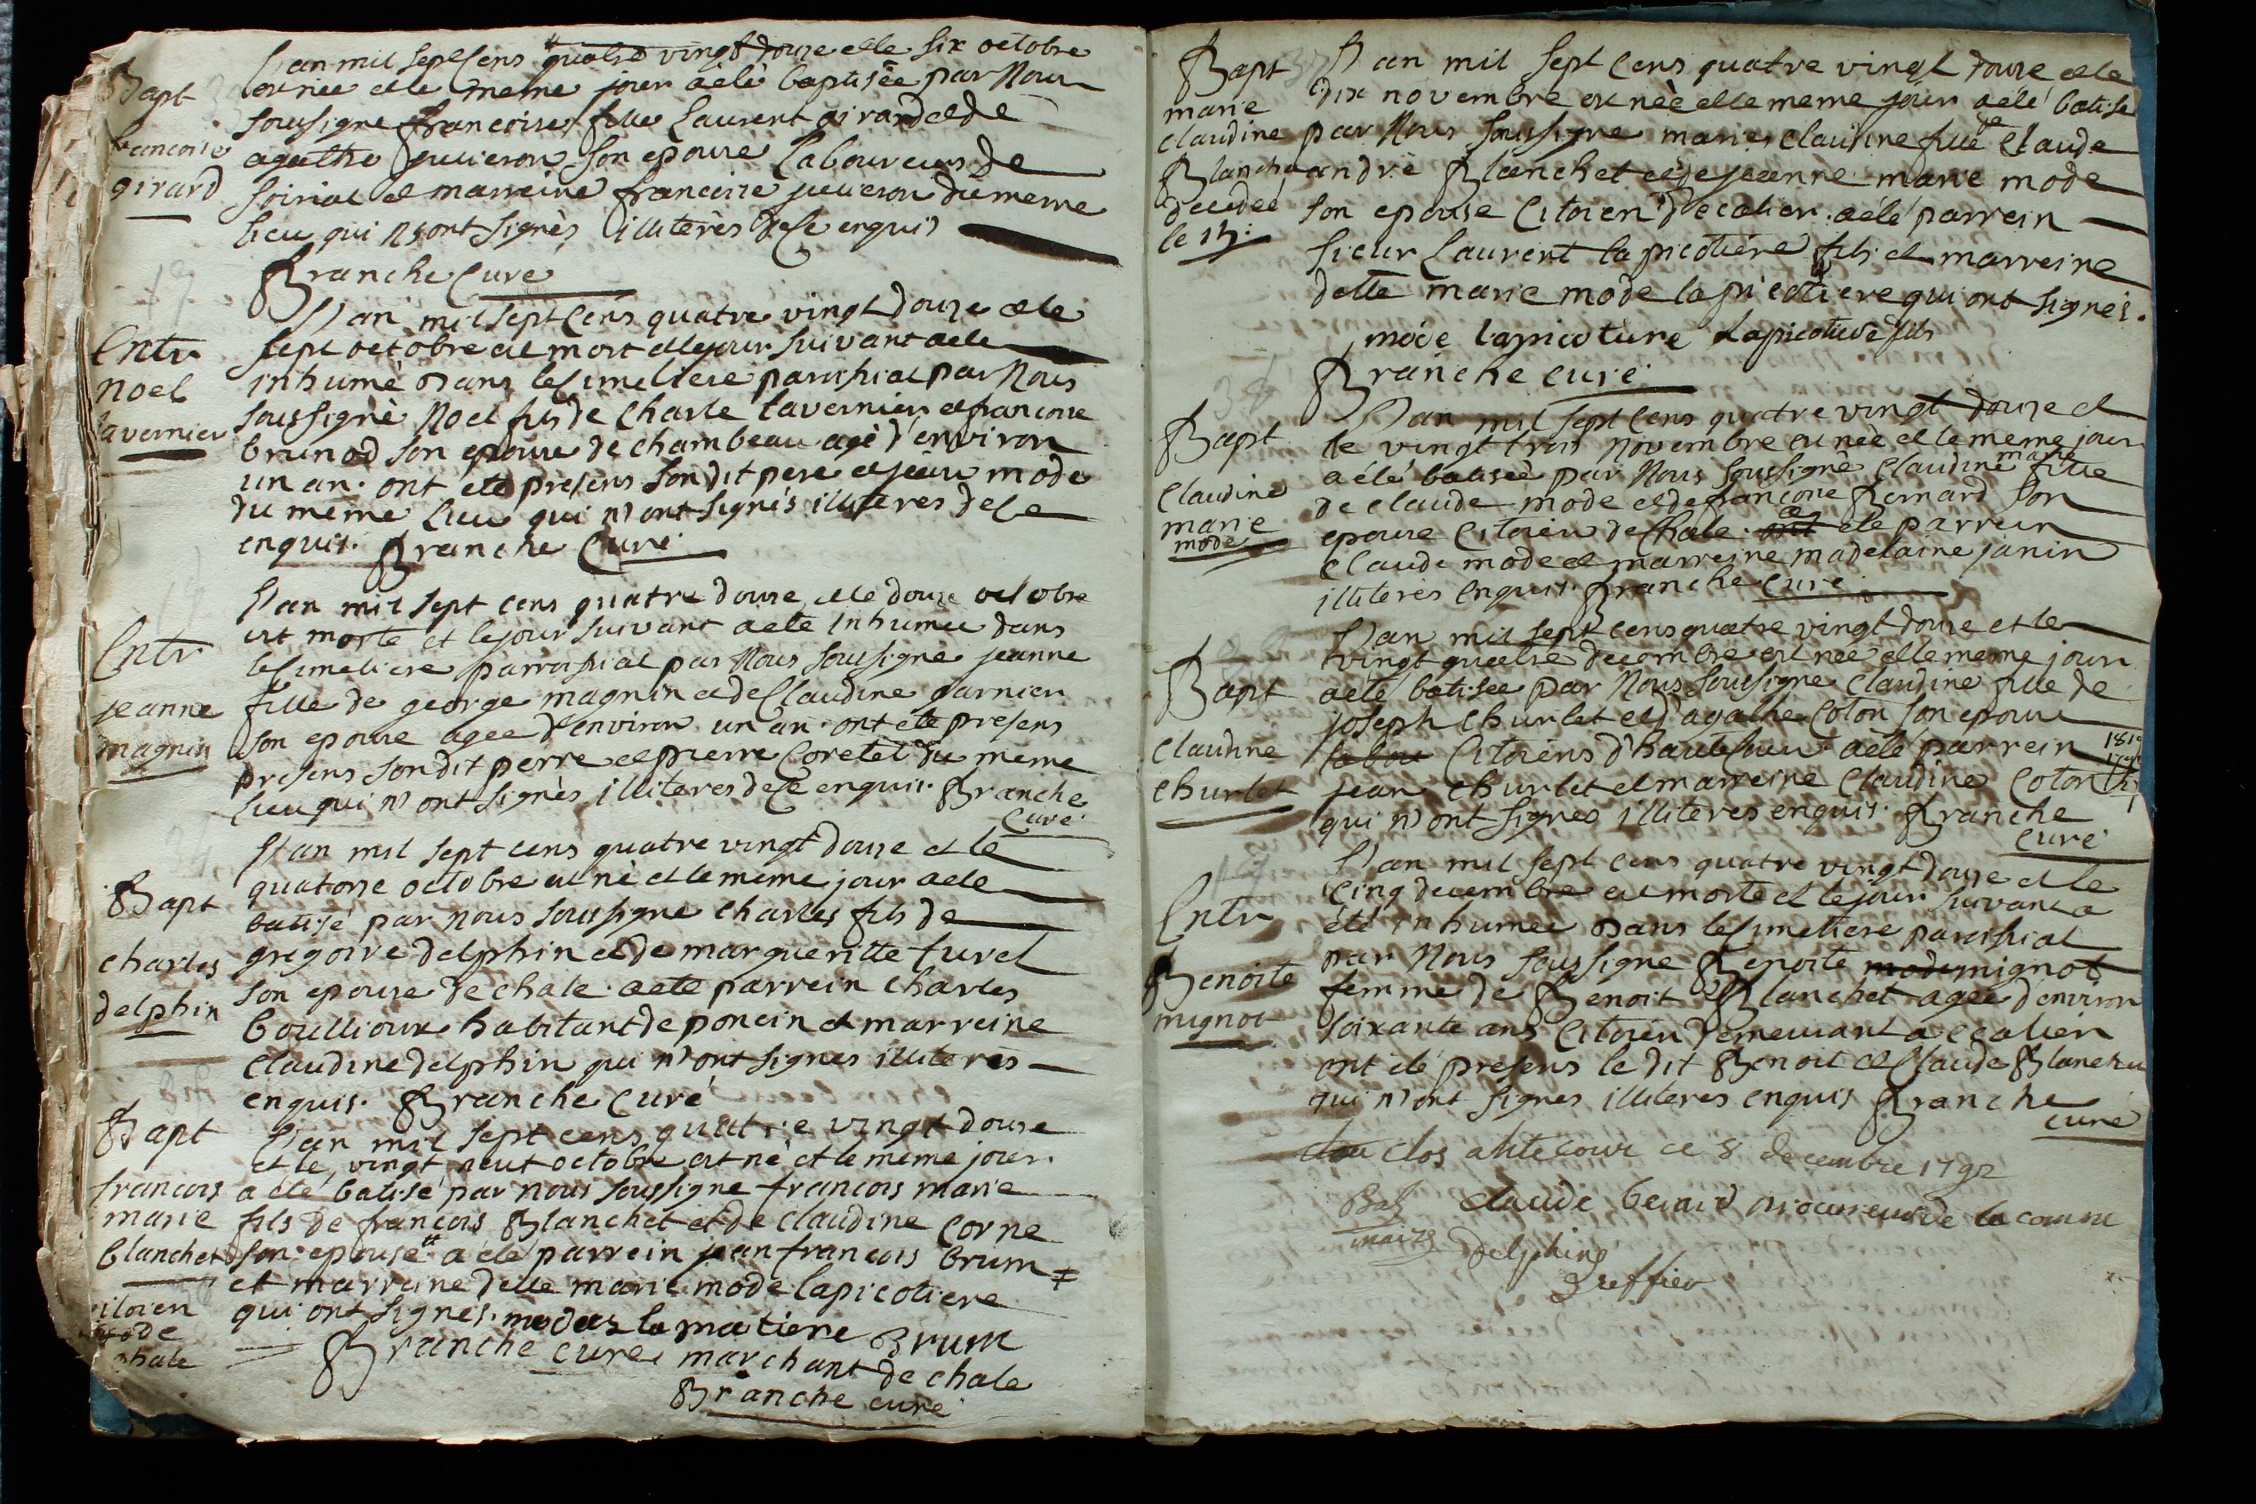 Bapt
francoise
girard
L'an mil sept cens quatre vingt douze et le six octobre
est née et le meme jour a été baptisée par Nous
soussigne francoise fille Laurent girard et de
agathe jucieron son epouse Laboureurs de
et marreine francoise jucieron du meme
lieu qui n'ont signés illiterès de ce enquis
Branche Curé
Entr
Noel
tavernier
L'an mil sept cens quatre vingt douze et le
sept octobre est mort et le jour suivant a ete
inhumé dans le simetiere paroissial par Nous
soussigné Noel fils de Charle tavernier et francoise
brunod son epouse de chambeau agé d'environ
un an. ont eté presens son dit pere et mode
du même lieu qui n'ont signés illiteres de ce
enquis. Branche Curé
Entr
jeanne
magnin
L'an mil sept cens quatre douze et le douze octobre
est morte et le jour suivant a ete inhumée dans
le simetiere parroissial par Nous soussigne jeanne
fille de george magnin et de Claudine garnier
son epouse agee d'environ un an. ont ete presens
presens son dit perre et pierre Coretet du meme
lieu qui n'ont signès illiteres de ce enquis. Branche
Curé
Bapt
charles
delphin
L'an mil sept cens quatre vingt douze et le
quatorze octobre est né et le meme jour a ete
batisé par nous soussigne charles fils de
gregoire delphin et de margueritte turel
son epouse de chale. a ete parrein charles
boullioux habitant de poncin et marreine
Claudine delphin qui n'ont signes illiteres
enquis. Branche Curé
Bapt
francois
marie
blanchet
citoien
mode
chale
L'an mil sept cens quatre vingt douze
et le vingt neuf octobre est né et le meme jour
a été batisé par nous soussigne francois marie
fils de francois Blanchet et de claudine Corne
son epouse a eté parrein jean francois brum
et marreine delle marie mode lapicotiere
qui ont signes. Brum
Branche curé marchant de chale
Branche curé
Bapt
marie
claudine
Blanchet
decedeé
le 15:
L'an mil sept cens quatre vingt douze et le
dix novembre est née et le meme jour a eté batise
par Nous soussigne marie claudine fille de Claude
andré Blanchet et de jeanne marie mode
son epouse Citoien d'ecalier. a eté parrein
sieur Laurent lapicotiere fils et marreine
delle marie mode lapicotiere qui ont signés.
mode lapicotiere Lapicotiere fils
Branche curé
Bapt
Claudine
marie
mode
L'an mil sept cens quatre vingt douze et
le vingt trois novembre est née et le meme jour
a été batisée par Nous soussigné Claudine marie fille
de Claude mode et de francoise Bernard son
epouse Citoien de Chale. ont a ete parrein
Claude mode et marreine madelaine janin
illiterès enquis. Branche curé
Bapt
Claudine
Churlet
L'an mil sept cens quatre vingt douze et le
vingt quatre decembre est née et le meme jour
a eté batisée par Nous soussigne Claudine fille de
joseph Churlet et d'agathe Coton son epouse
labou Citoiens d'hautecour. a eté parrein
jean churlet et marreine Claudine Coton
qui n'ont signes illitères enquis. Branche
curé
Entr
Benoite
mignot
L'an mil sept cens quatre vingt douze et le
cinq decembre est morte et le jour suivant a
été inhumee dans le simetiere paroissial
par Nous soussigne Benoite mode mignot
femme de Benoit Blanchet agée d'environ
soixante ans Citoien demeurant a ecalier
ont eté presens le dit Benoit et Claude Blanchet
qui n'ont signes illiteres enquis Branche
curé
clos a htecour ce 8 decembre 1792
maire
claude benard procureur de la comm
Delphin
Greffier